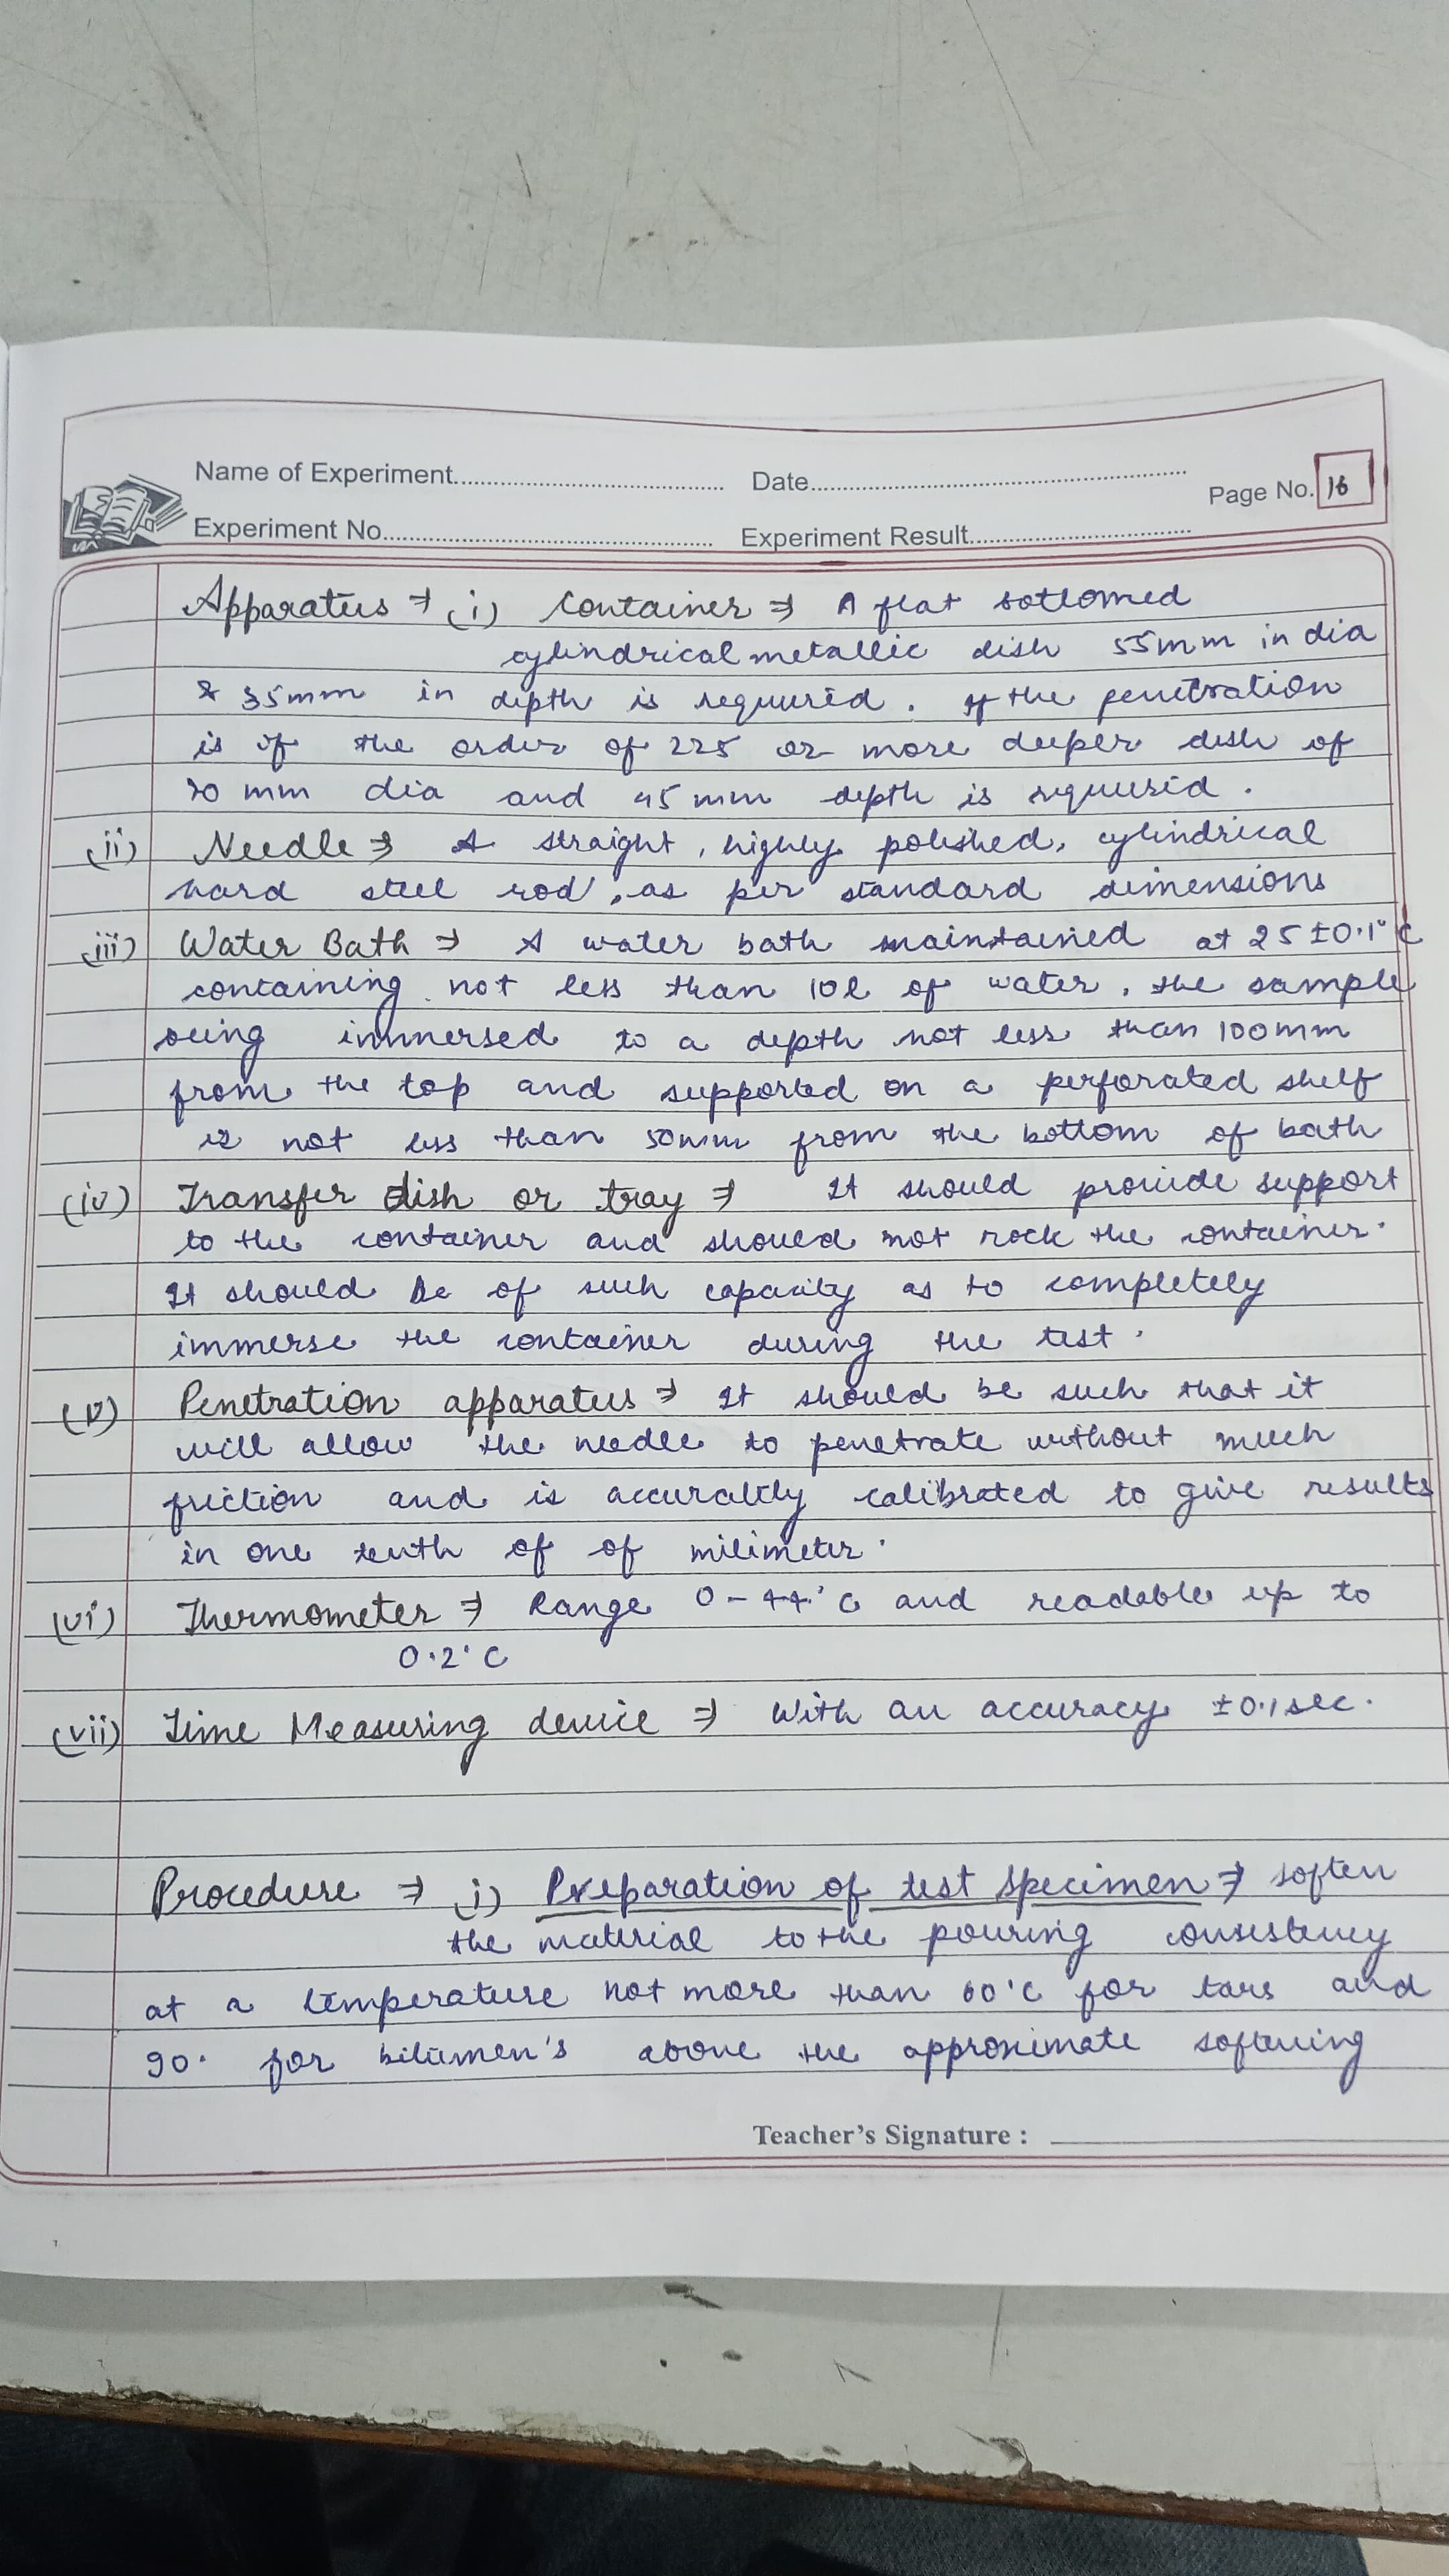 Name of Experiment........ Date........ Page No. 16
Experiment No........ Experiment Result........
Apparatus ⇒ (i) Container ⇒ A flat bottomed
cylindrical metallic dish 55mm in dia
& 35mm in depth is required. If the penetration
is of the order of 225 or more deeper dish of
70 mm dia and 45 mm depth is required.
(ii) Needle ⇒ A straight, highly polished, cylindrical
hard steel rod, as per standard dimensions
(iii) Water Bath ⇒ A water bath maintained at 25 ±0.1°C
containing not less than 10l of water, the sample
being immersed to a depth not less than 100mm
from the top and supported on a perforated shelf
is not less than 50mm from the bottom of bath
(iv) Transfer dish or tray ⇒ It should provide support
to the container and should not rock the container.
It should be of such capacity as to completely
immerse the container during the test.
(v) Penetration apparatus ⇒ It should be such that it
will allow the needle to penetrate without much
friction and is accurately calibrated to give results
in one tenth of of milimeter.
(vi) Thermometer ⇒ Range 0-44°C and readable up to
0.2°C
(vii) Time Measuring device ⇒ With an accuracy ±0.1sec.
Procedure ⇒ (i) Preparation of test specimen ⇒ soften
the material to the pouring consistency
at a temperature not more than 60°C for tars and
90° for bitumen's above the approximate softening
Teacher's Signature :